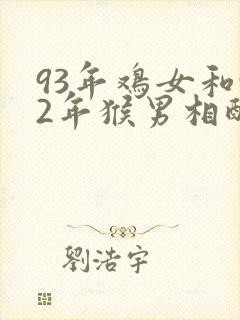 93年鸡女和
2年猴男相配
劉浩宇